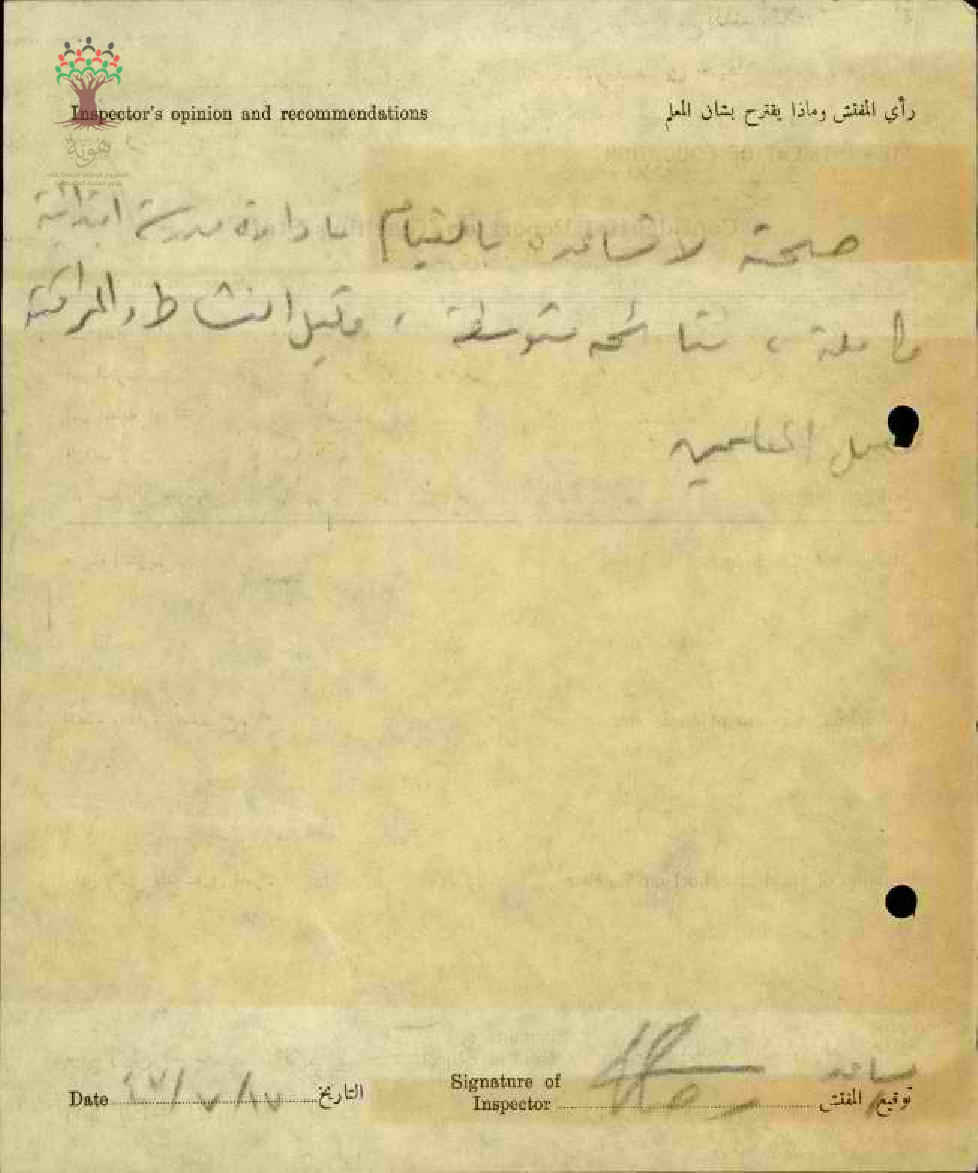 Inspector's opinion and recommendations رأي المفتش وماذا يقترح بشأن المعلم
هوية
صحته لا تساعده بالقيام بادارة مدرسة ابتدائية
كاملة ، نتائجه متوسطة ، قليل النشاط والمراقبة
لعمل المعلمين
مساعد
Date ٤٧/٧/١٧ التاريخ
Signature of Inspector توقيع المفتش